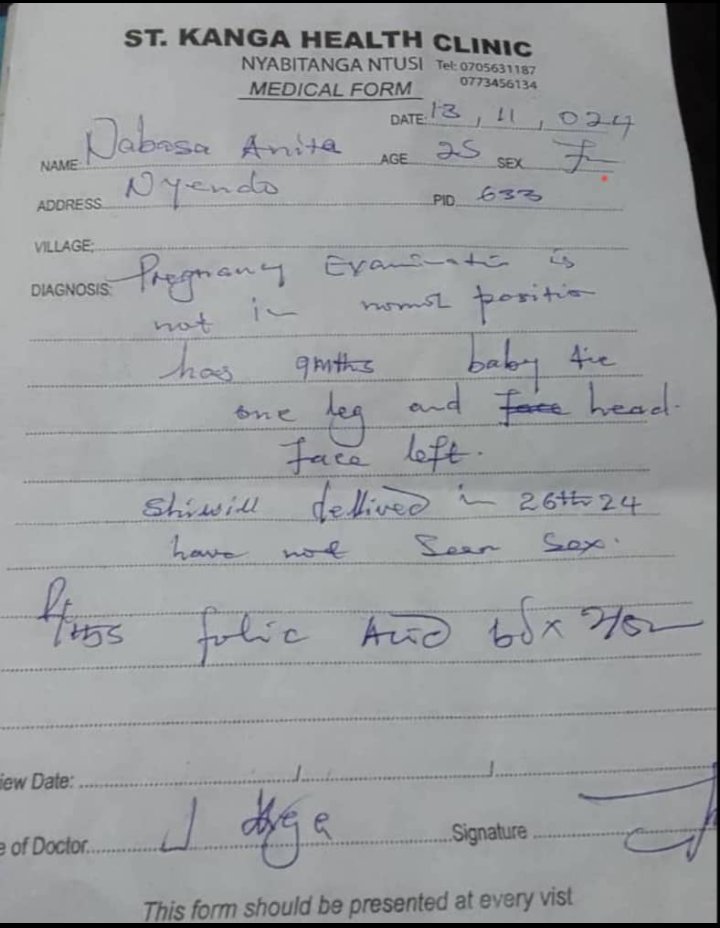 ST. KANGA HEALTH CLINIC
NYABITANGA NTUSI Tel: 0705631187
0773456134
MEDICAL FORM
DATE: 13, 11, 024
NAME: Nabasa Anita AGE 25 SEX F
ADDRESS Nyendo PID 633
VILLAGE:
DIAGNOSIS: Pregnancy Examinatin is
not in position
has 9mths baby
one leg and face head.
face left.
in 26th 24
have not Seen Sex.
folic Acid bd x
iew Date:
e of Doctor J Signature
This form should be presented at every vist